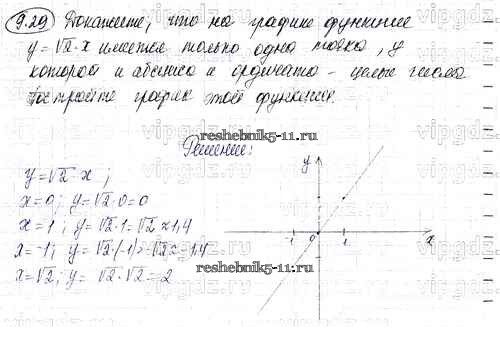 9.29 Докажите, что на графике функции
y = √2 · x имеется только одна точка, у
которой и абсцисса и ордината – целые числа
Постройте график этой функции.
Решение:
y = √2 · x;
x = 0; y = √2 · 0 = 0
x = 1; y = √2 · 1 = √2 ≈ 1,4
x = -1; y = √2 · (-1) = -√2 ≈ -1,4
x = √2; y = √2 · √2 = 2
y
-1 0 1 x
reshebnik5-11.ru
reshebnik5-11.ru
vipgdz.ru